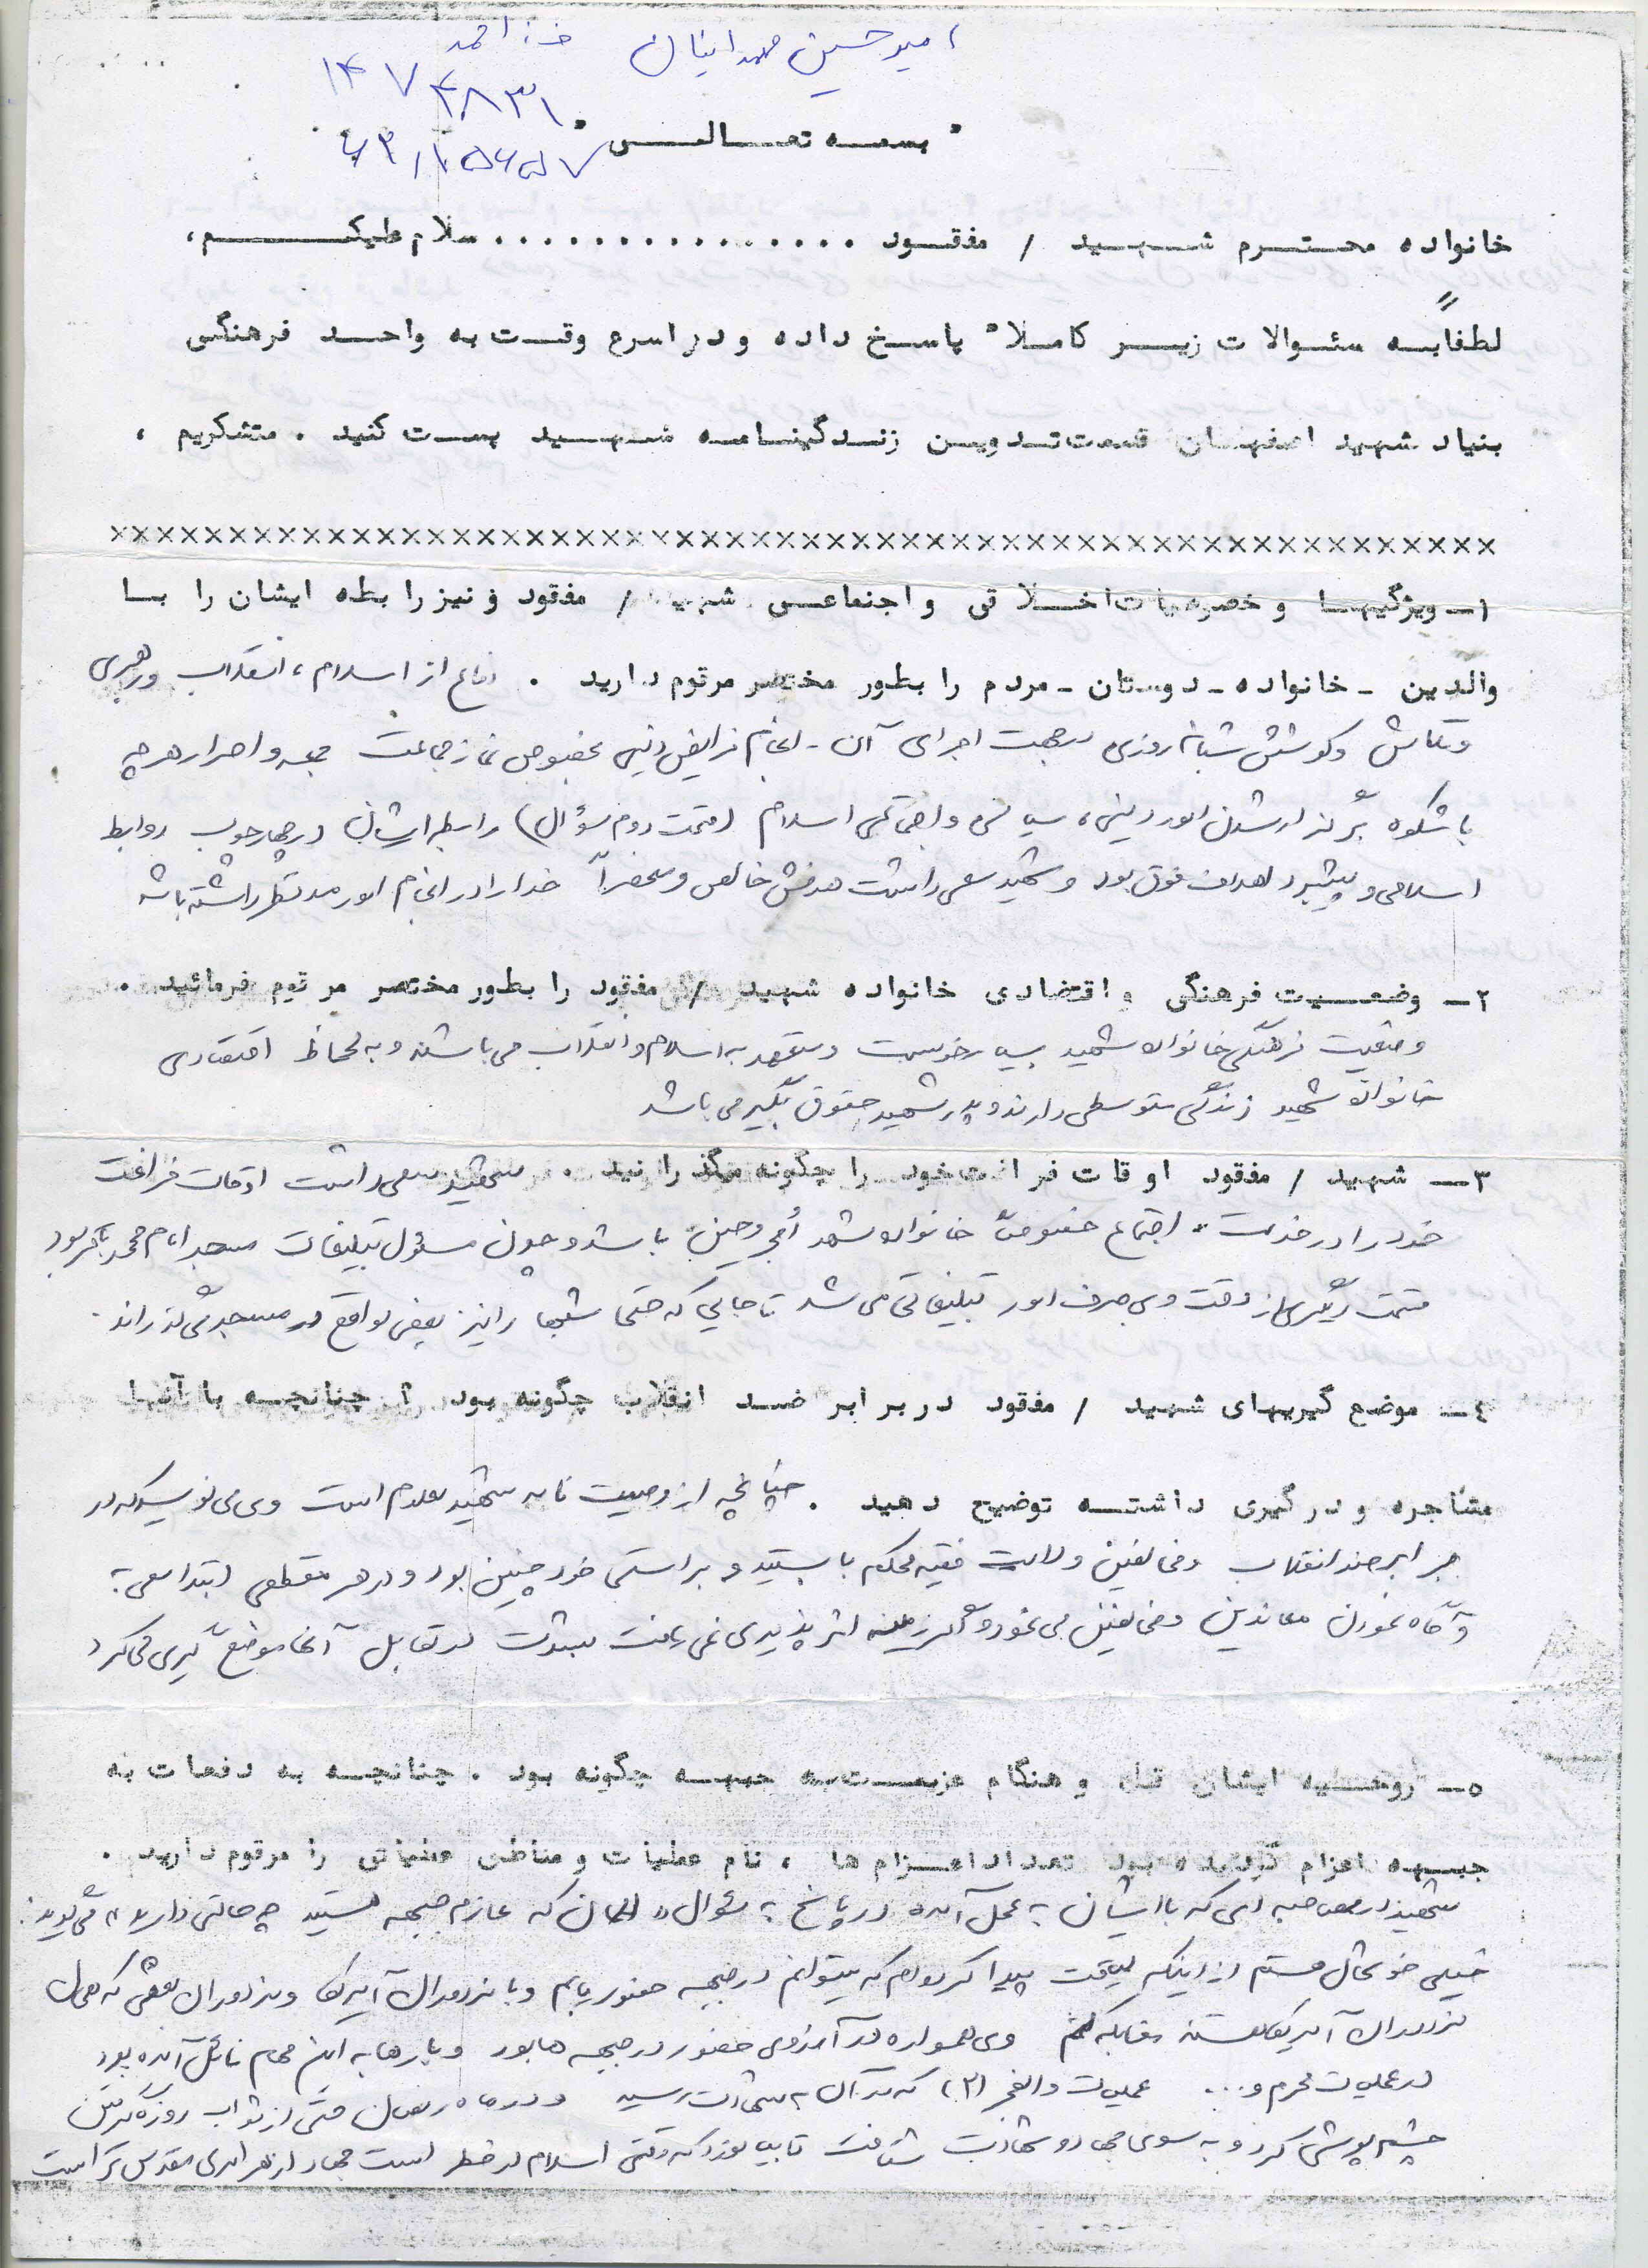 امیرحسین مهدانیان فرزند احمد
۱۴۷۴۸۳۱
" بسمه تعالی "
خانواده محترم شهید / مفقود ................ سلام علیکم،
لطفاً به سئوالات زیر کاملا" پاسخ داده و در اسرع وقت به واحد فرهنگی
بنیاد شهید اصفهان قسمت تدوین زندگینامه شهید پست کنید . متشکریم ،
××××××××××××××××××××××××××××××××××××××××××××××××××××××××
۱ـ ویژگیها و خصوصیات اخلاقی و اجتماعی شهید / مفقود و نیز رابطه ایشان را با
والدین ـ خانواده ـ دوستان ـ مردم را بطور مختصر مرقوم دارید . دفاع از اسلام، انقلاب و رهبری
و تلاش و کوشش شبانه روزی در جهت اجرای آن - انجام فرایض دینی بخصوص نماز جماعت جمعه و اصرار هر چه
با شکوه برگزار شدن امور دینی، سیاسی و اجتماعی اسلام (قسمت دوم سؤال) رابطه ایشان در چهارچوب روابط
اسلامی و پیشبرد اهداف فوق بود و شهید سعی داشت هدفش خالص و منحصراً خدا را در انجام امور مد نظر داشته باشد
۲ـ وضعیت فرهنگی و اقتصادی خانواده شهید / مفقود را بطور مختصر مرقوم فرمائید .
وضعیت فرهنگی خانواده شهید بسیار خوبست و متعهد به اسلام و انقلاب می باشند و به لحاظ اقتصادی
خانواده شهید زندگی متوسطی دارند و پدر شهید حقوق بگیر می باشد
۳ـ شهید / مفقود اوقات فراغت خود را چگونه میگذرانید . شهید سعی داشت اوقات فراغت
خود را در خدمت اجتماع خصوصاً خانواده شهدا و مجروحین باشد و چون مسئول تبلیغات مسجد امام محمد باقر بود
قسمت دیگری از وقت وی صرف امور تبلیغاتی می شد تا جایی که حتی شبها را نیز بعضی مواقع در مسجد می گذراند.
٤ـ موضع گیریهای شهید / مفقود در برابر ضد انقلاب چگونه بود ؟ چنانچه با آنها
مشاجره و درگیری داشته توضیح دهید . چنانچه از وصیت نامه شهید معلوم است وی می نویسد که در
برابر ضد انقلاب و مخالفین ولایت فقیه محکم بایستید و براستی خود چنین بود و در هر مقطعی ابتدا سعی به
و آگاه نمودن معاندین و مخالفین می نمود و اگر زمینه اثر پذیری نمی یافت بشدت در تقابل آنها موضع گیری می کرد
٥ـ روحیه ایشان قبل و هنگام عزیمت به جبهه چگونه بود . چنانچه به دفعات به
جبهه اعزام گردیده بود تعداد اعزام ها ، نام عملیات و مناطق عملیاتی را مرقوم دارید .
شهید در مصاحبه ای که با ایشان به عمل آمده در پاسخ به سئوال « الان که عازم جبهه هستید چه حالتی دارید » می گوید:
خیلی خوشحال هستم از اینکه لیاقت پیدا کرده ام که میتوانم در جبهه حضور یابم و با مزدوران آمریکا و مزدوران بعثی که همان
مزدوران آمریکا هستند مقابله کنم وی همواره در آرزوی حضور در جبهه ها بود و بارها به این مهم نائل آمده بود
در عملیات محرم و ... عملیات والفجر (۲) که در آن به شهادت رسید و در ماه رمضان حتی از ثواب روزه گرفتن
چشم پوشی کرد و به سوی جهاد و شهادت شتافت تا بیاموزد که وقتی اسلام در خطر است جهاد از هر امری مقدس تر است